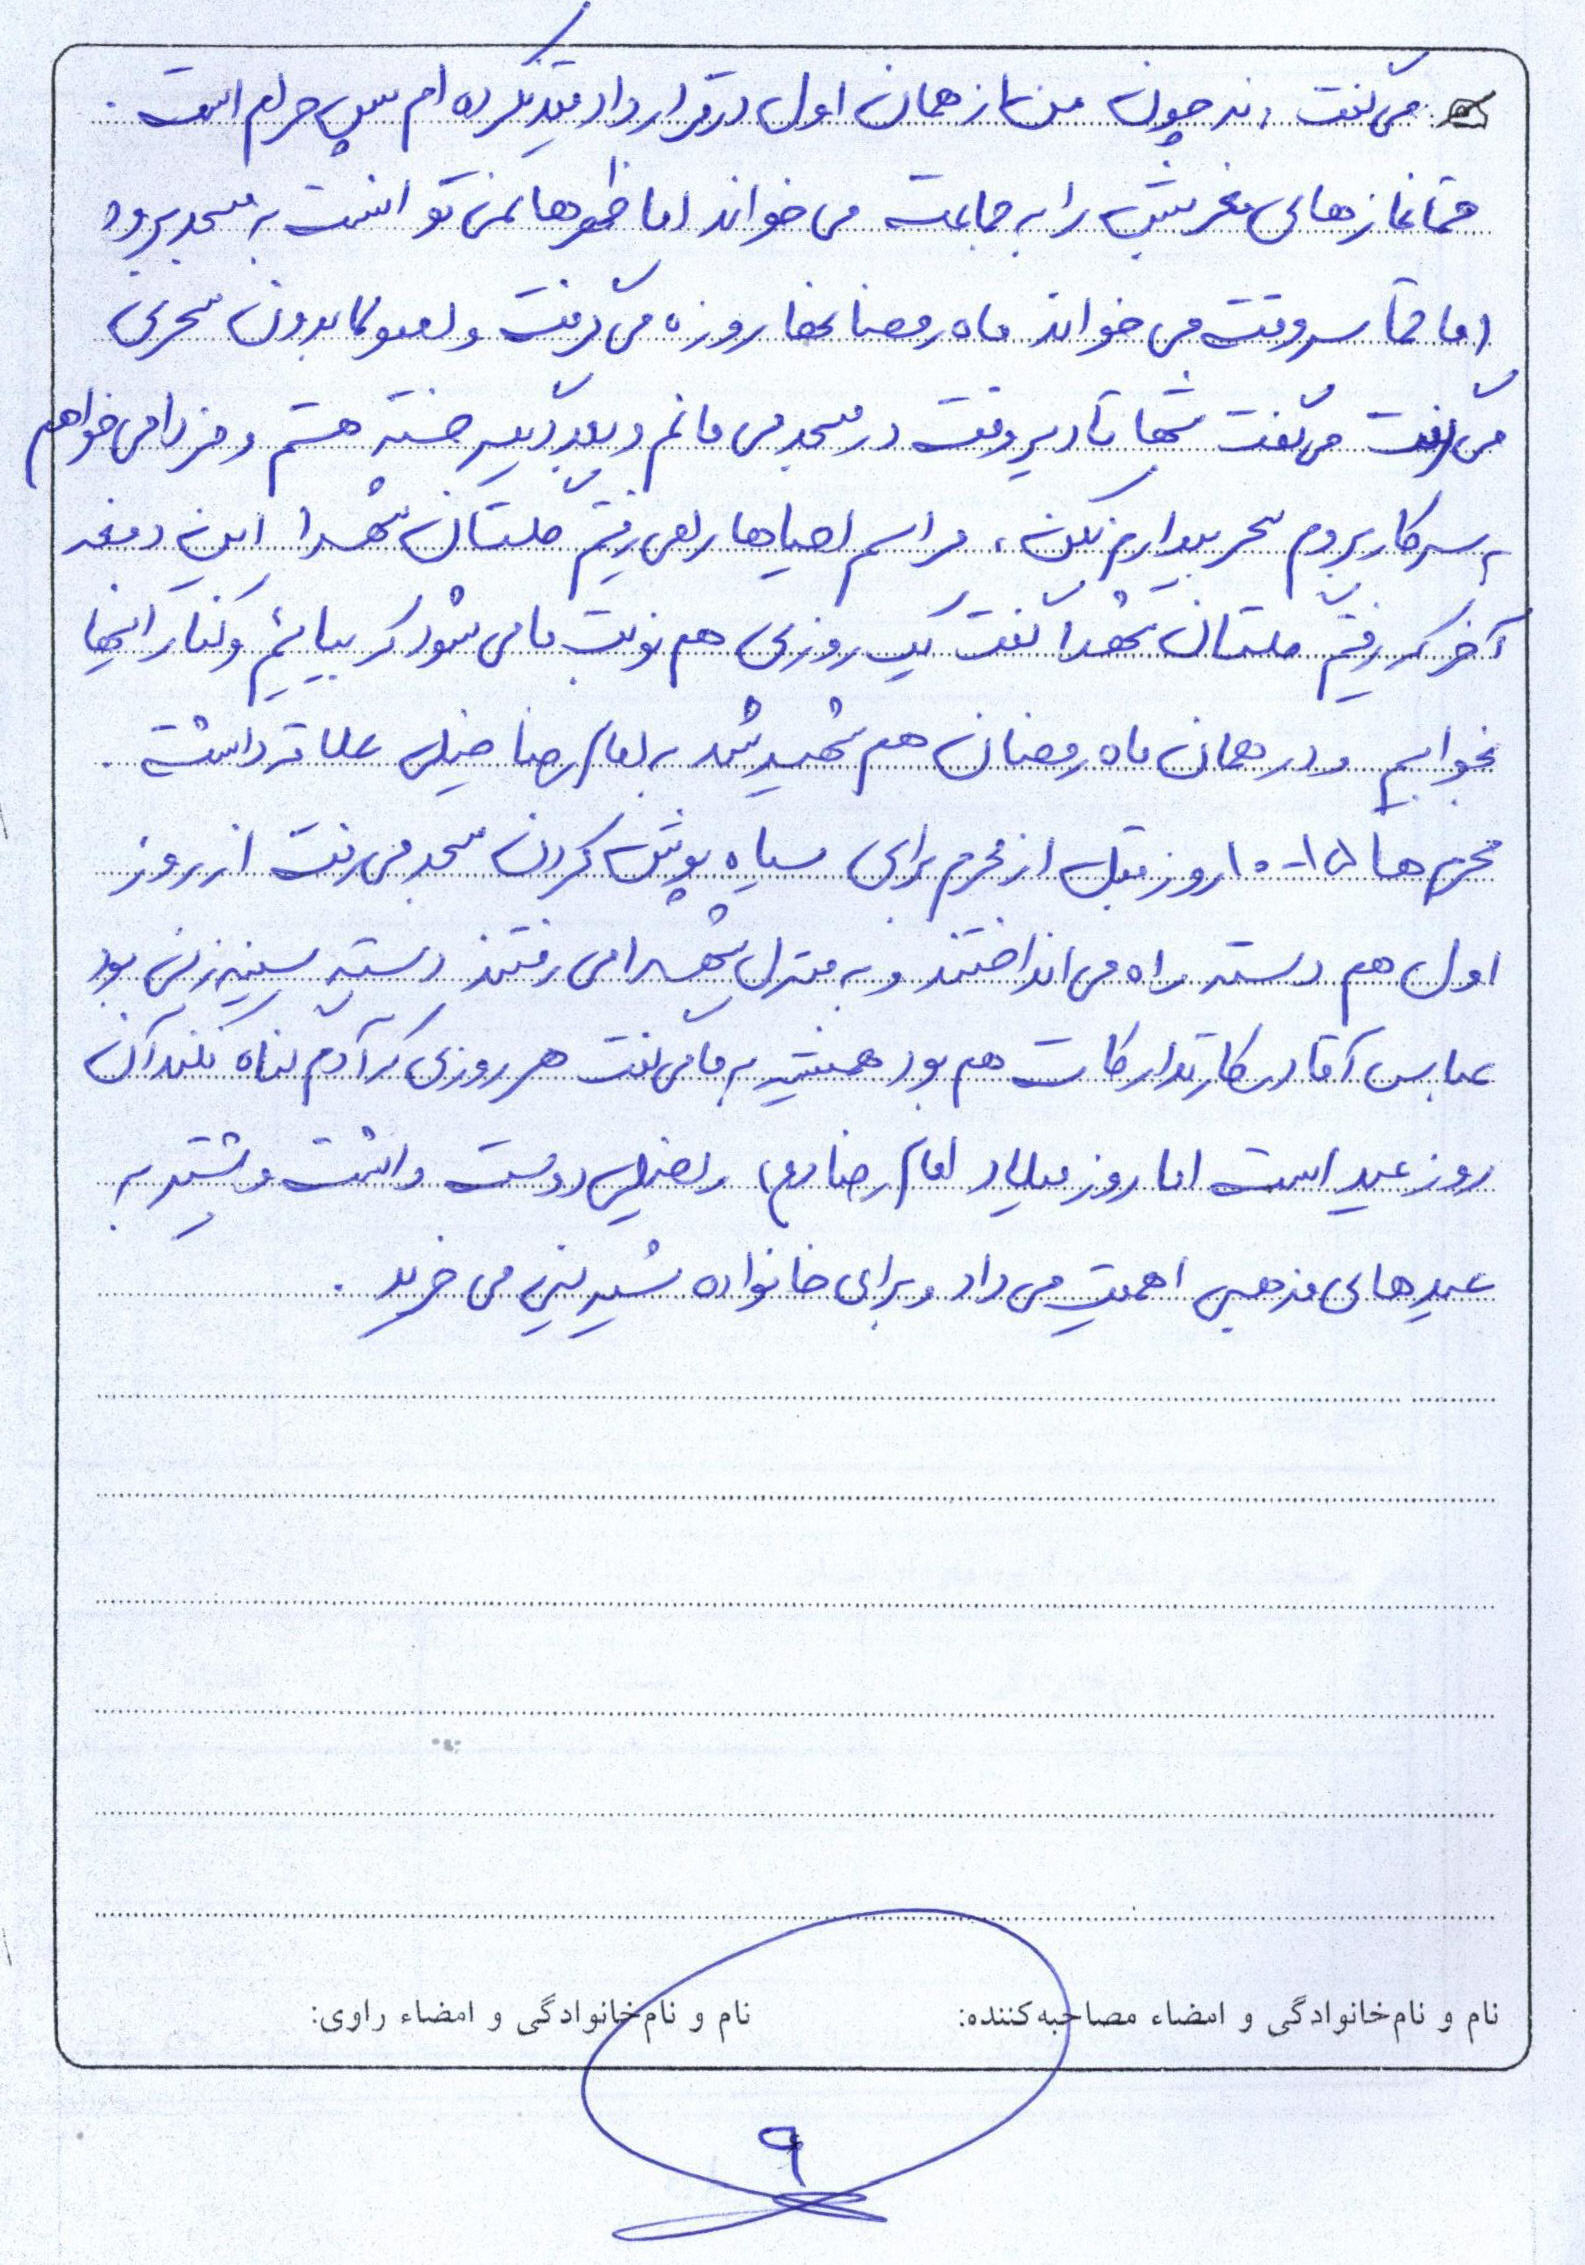 می گفت ، نه چون من از همان اول در قرارداد قید نکرده ام پس حرام است .
حتما نمازهای مغربش را به جماعت می خواند اما ظهرها نمی توانست به مسجد برود
اما حتما سر وقت می خواند ماه رمضانها روزه می گرفت و معمولا بدون سحری
می گرفت می گفت شبها تا دیر وقت در مسجد می مانم و بعد دیگر خسته هستم و فردا می خواهم
به سر کار بروم سحر بیدارم نکن ، مراسم احیاها را می رفتیم گلستان شهدا این دفعه
آخر که رفتیم گلستان شهدا گفت یک روزی هم نوبت ما می شود که بیائیم و کنار اینها
بخوابیم و در همان ماه رمضان هم شهید شد به امام رضا خیلی علاقه داشت .
محرم ها ۱۵-۱۰ روز قبل از محرم برای سیاه پوش کردن مسجد می رفت از روز
اول هم دسته راه می انداختند و به منزل شهدا می رفتند دسته سینه زنی بود
عباس آقا در کار تدارکات هم بود همیشه به ما می گفت هر روزی که آدم گناه نکند آن
روز عید است اما روز میلاد امام رضا (ع) را خیلی دوست داشت و بیشتر به
عیدهای مذهبی اهمیت می داد و برای خانواده شیرینی می خرید .
نام و نام‌خانوادگی و امضاء مصاحبه‌کننده: نام و نام‌خانوادگی و امضاء راوی:
۹